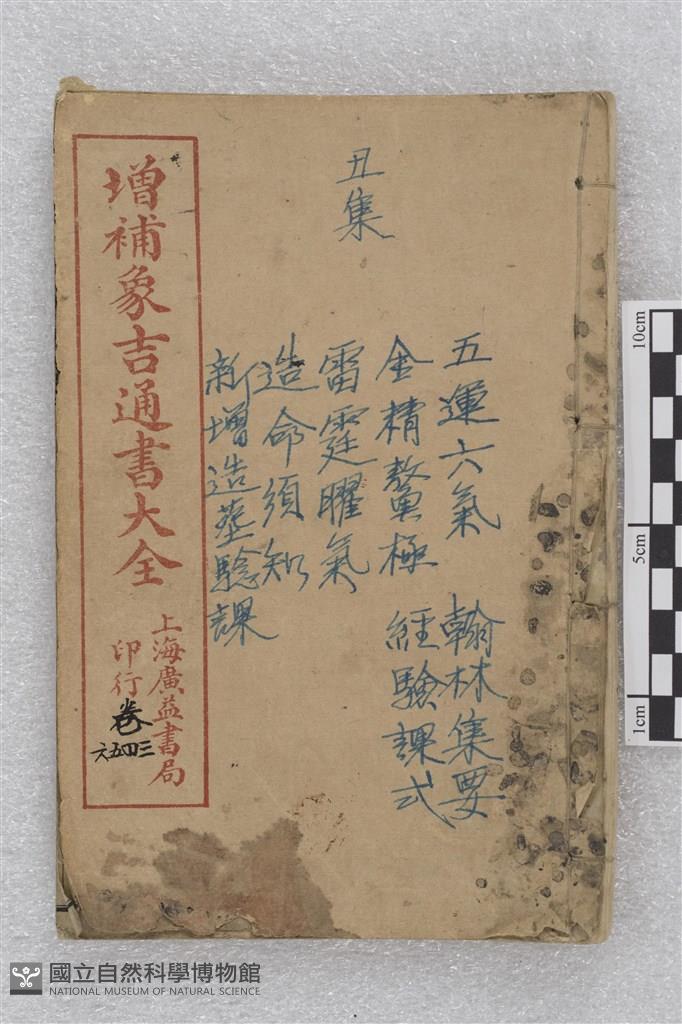 丑集
五運六氣 翰林集要
金精鰲極 經驗課式
雷霆曜氣
造命須知
新增造葬驗課
增補象吉通書大全
上海廣益書局
印行
卷
三四五六
10cm
5cm
1cm
國立自然科學博物館
NATIONAL MUSEUM OF NATURAL SCIENCE